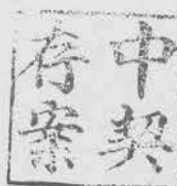 中契
存案